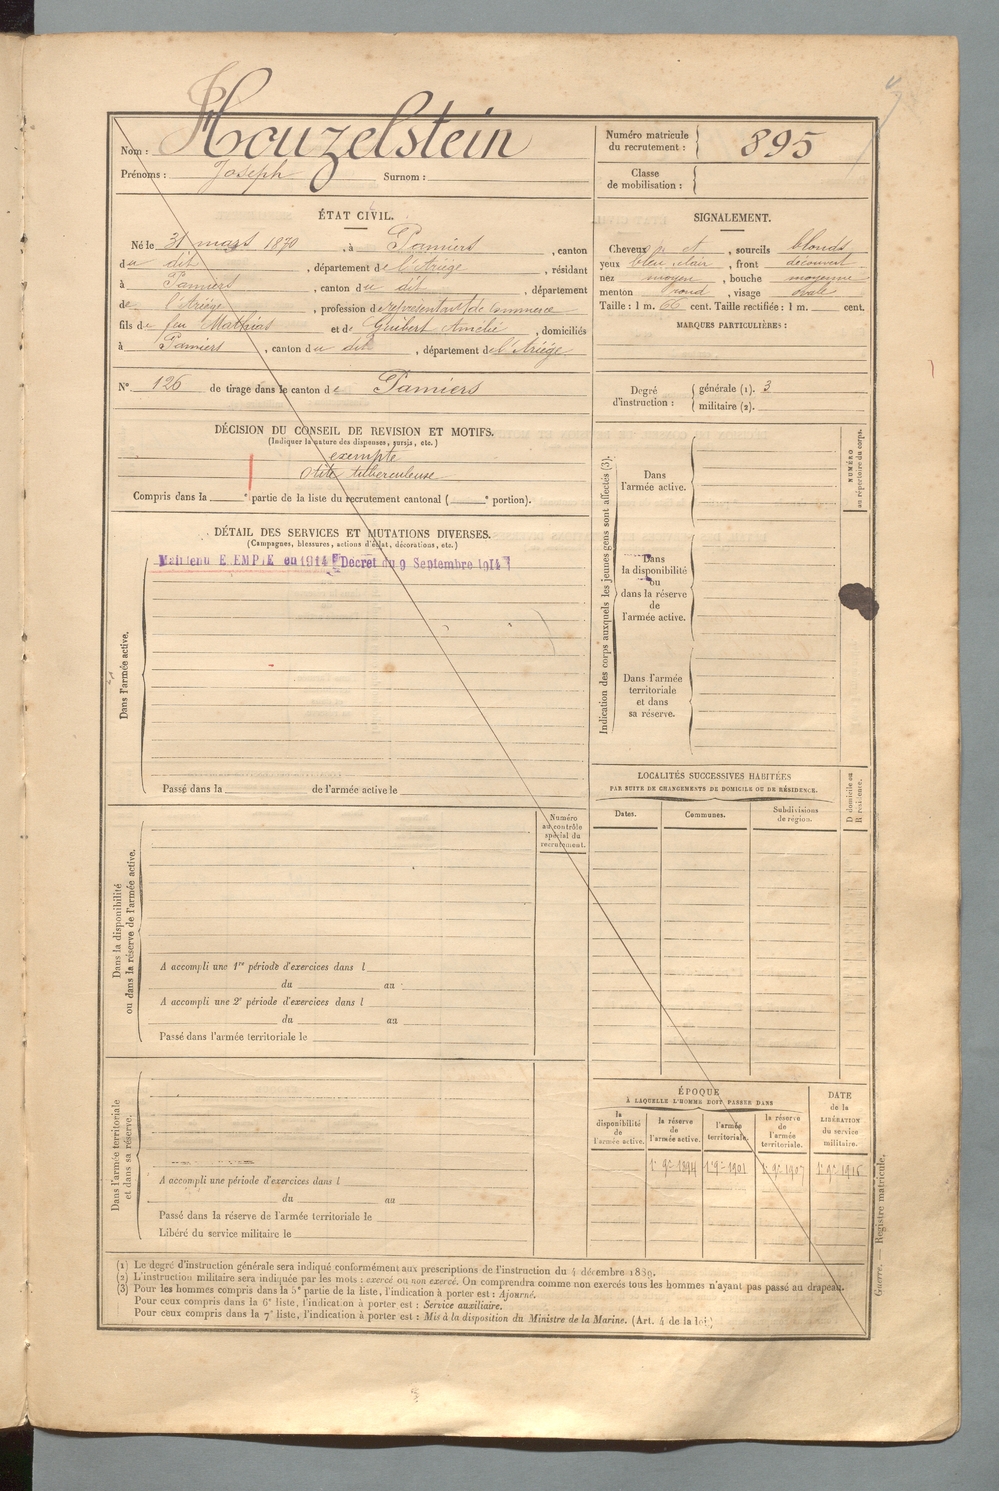 Nom : Houzelstein
Prénoms : Joseph Surnom :
Numéro matricule du recrutement : 895
Classe de mobilisation :
ÉTAT CIVIL.
Né le 31 mars 1870, à Pamiers, canton
du dit, département de l'Ariège, résidant
à Pamiers, canton du dit, département
de l'Ariège, profession de représentant de commerce
fils de feu Mathias et de Guibert Amélie, domiciliés
à Pamiers, canton du dit, département de l'Ariège
N° 126 de tirage dans le canton de Pamiers
DÉCISION DU CONSEIL DE REVISION ET MOTIFS.
(Indiquer la nature des dispenses, sursis, etc.)
exempté
Otite tuberculeuse
Compris dans la e partie de la liste du recrutement cantonal ( e portion).
SIGNALEMENT.
Cheveux et, sourcils blonds
yeux bleu clair, front découvert
nez moyen, bouche moyenne
menton rond, visage ovale
Taille : 1 m. 66 cent. Taille rectifiée : 1 m. cent.
MARQUES PARTICULIÈRES :
Degré d'instruction : générale (1). 3
militaire (2).
DÉTAIL DES SERVICES ET MUTATIONS DIVERSES.
(Campagnes, blessures, actions d'éclat, décorations, etc.)
Maintenu EXEMPTE en 1914 (Décret du 9 Septembre 1914)
Dans l'armée active.
Passé dans la de l'armée active le
Indication des corps auxquels les jeunes gens sont affectés (3).
Dans
l'armée active.
Dans
la disponibilité
ou
dans la réserve
de
l'armée active.
Dans l'armée
territoriale
et dans
sa réserve.
NUMÉRO
au répertoire du corps.
LOCALITÉS SUCCESSIVES HABITÉES
PAR SUITE DE CHANGEMENTS DE DOMICILE OU DE RÉSIDENCE.
Dates. Communes. Subdivisions de région.
D domicile ou
R résidence.
Numéro
au contrôle
spécial du
recrutement.
Dans la disponibilité
ou dans la réserve de l'armée active.
A accompli une 1re période d'exercices dans l
du au
A accompli une 2e période d'exercices dans l
du au
Passé dans l'armée territoriale le
Dans l'armée territoriale
et dans sa réserve.
A accompli une période d'exercices dans l
du au
Passé dans la réserve de l'armée territoriale le
Libéré du service militaire le
ÉPOQUE
À LAQUELLE L'HOMME DOIT PASSER DANS
la disponibilité de l'armée active.
la réserve de l'armée active.
l'armée territoriale.
la réserve de l'armée territoriale.
DATE de la LIBÉRATION du service militaire.
1er 9bre 1894 1er 9bre 1901 1er 9bre 1907 1er 9bre 1916
Guerre. — Registre matricule.
(1) Le degré d'instruction générale sera indiqué conformément aux prescriptions de l'instruction du 4 décembre 1889.
(2) L'instruction militaire sera indiquée par les mots : exercé ou non exercé. On comprendra comme non exercés tous les hommes n'ayant pas passé au drapeau.
(3) Pour les hommes compris dans la 5e partie de la liste, l'indication à porter est : Ajourné.
Pour ceux compris dans la 6e liste, l'indication à porter est : Service auxiliaire.
Pour ceux compris dans la 7e liste, l'indication à porter est : Mis à la disposition du Ministre de la Marine. (Art. 4 de la loi.)